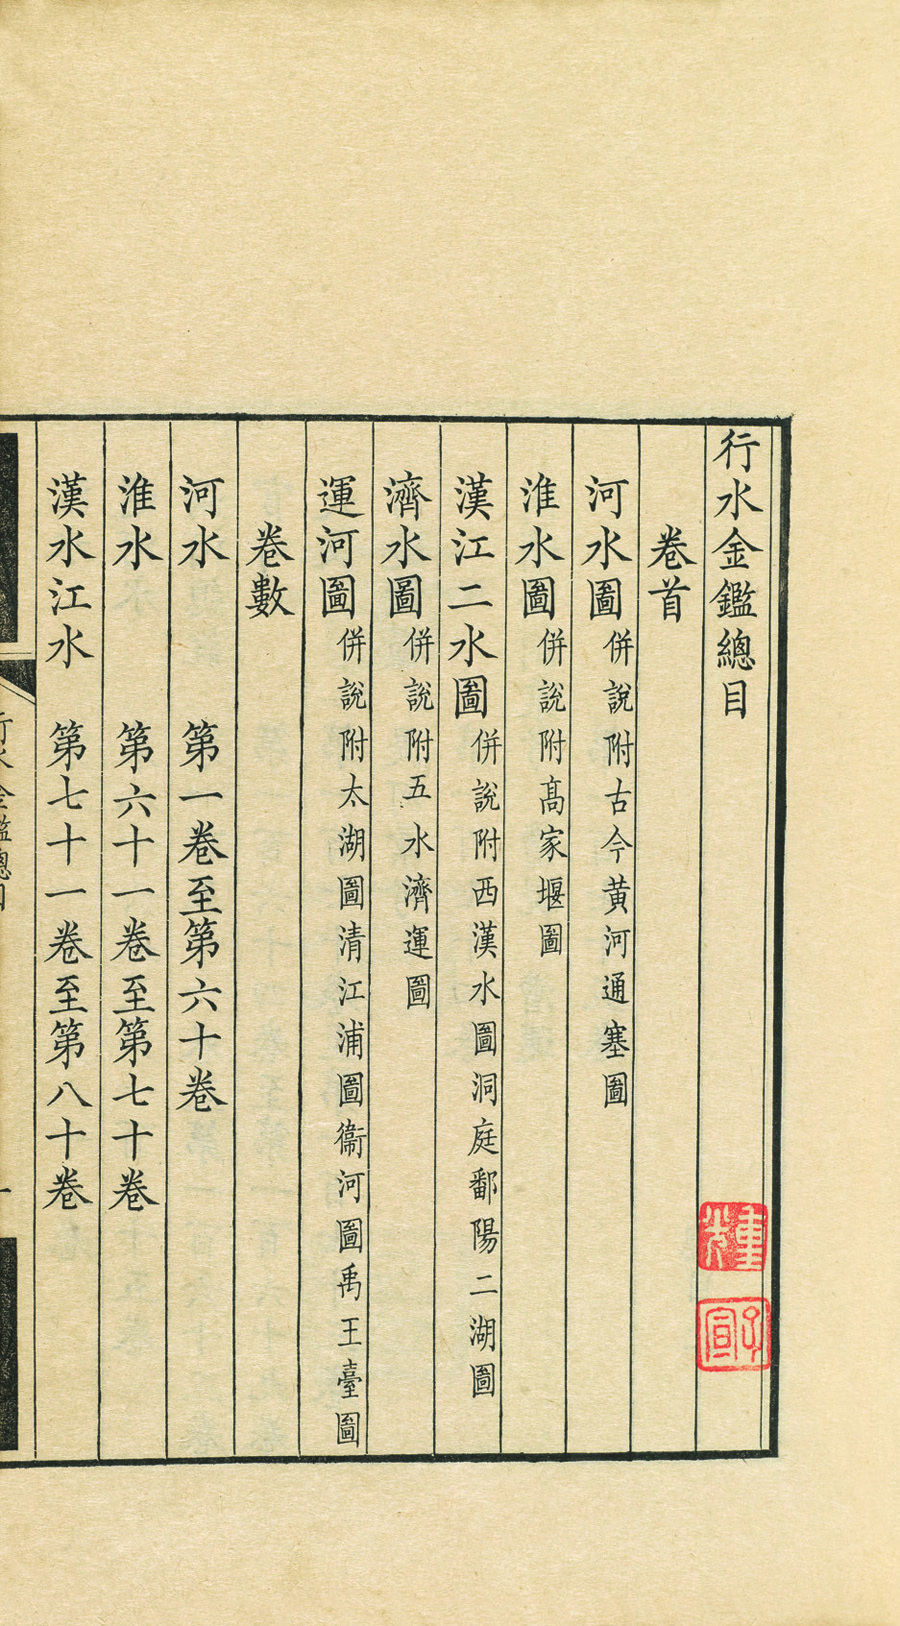 行水金鑑總目
卷首
河水圖併說附古今黃河通塞圖
淮水圖併說附高家堰圖
漢江二水圖併說附西漢水圖洞庭鄱陽二湖圖
濟水圖併說附五水濟運圖
運河圖併說附太湖圖清江浦圖衞河圖禹王臺圖
卷數
河水 第一卷至第六十卷
淮水 第六十一卷至第七十卷
漢水江水 第七十一卷至第八十卷
行水金鑑總目
一